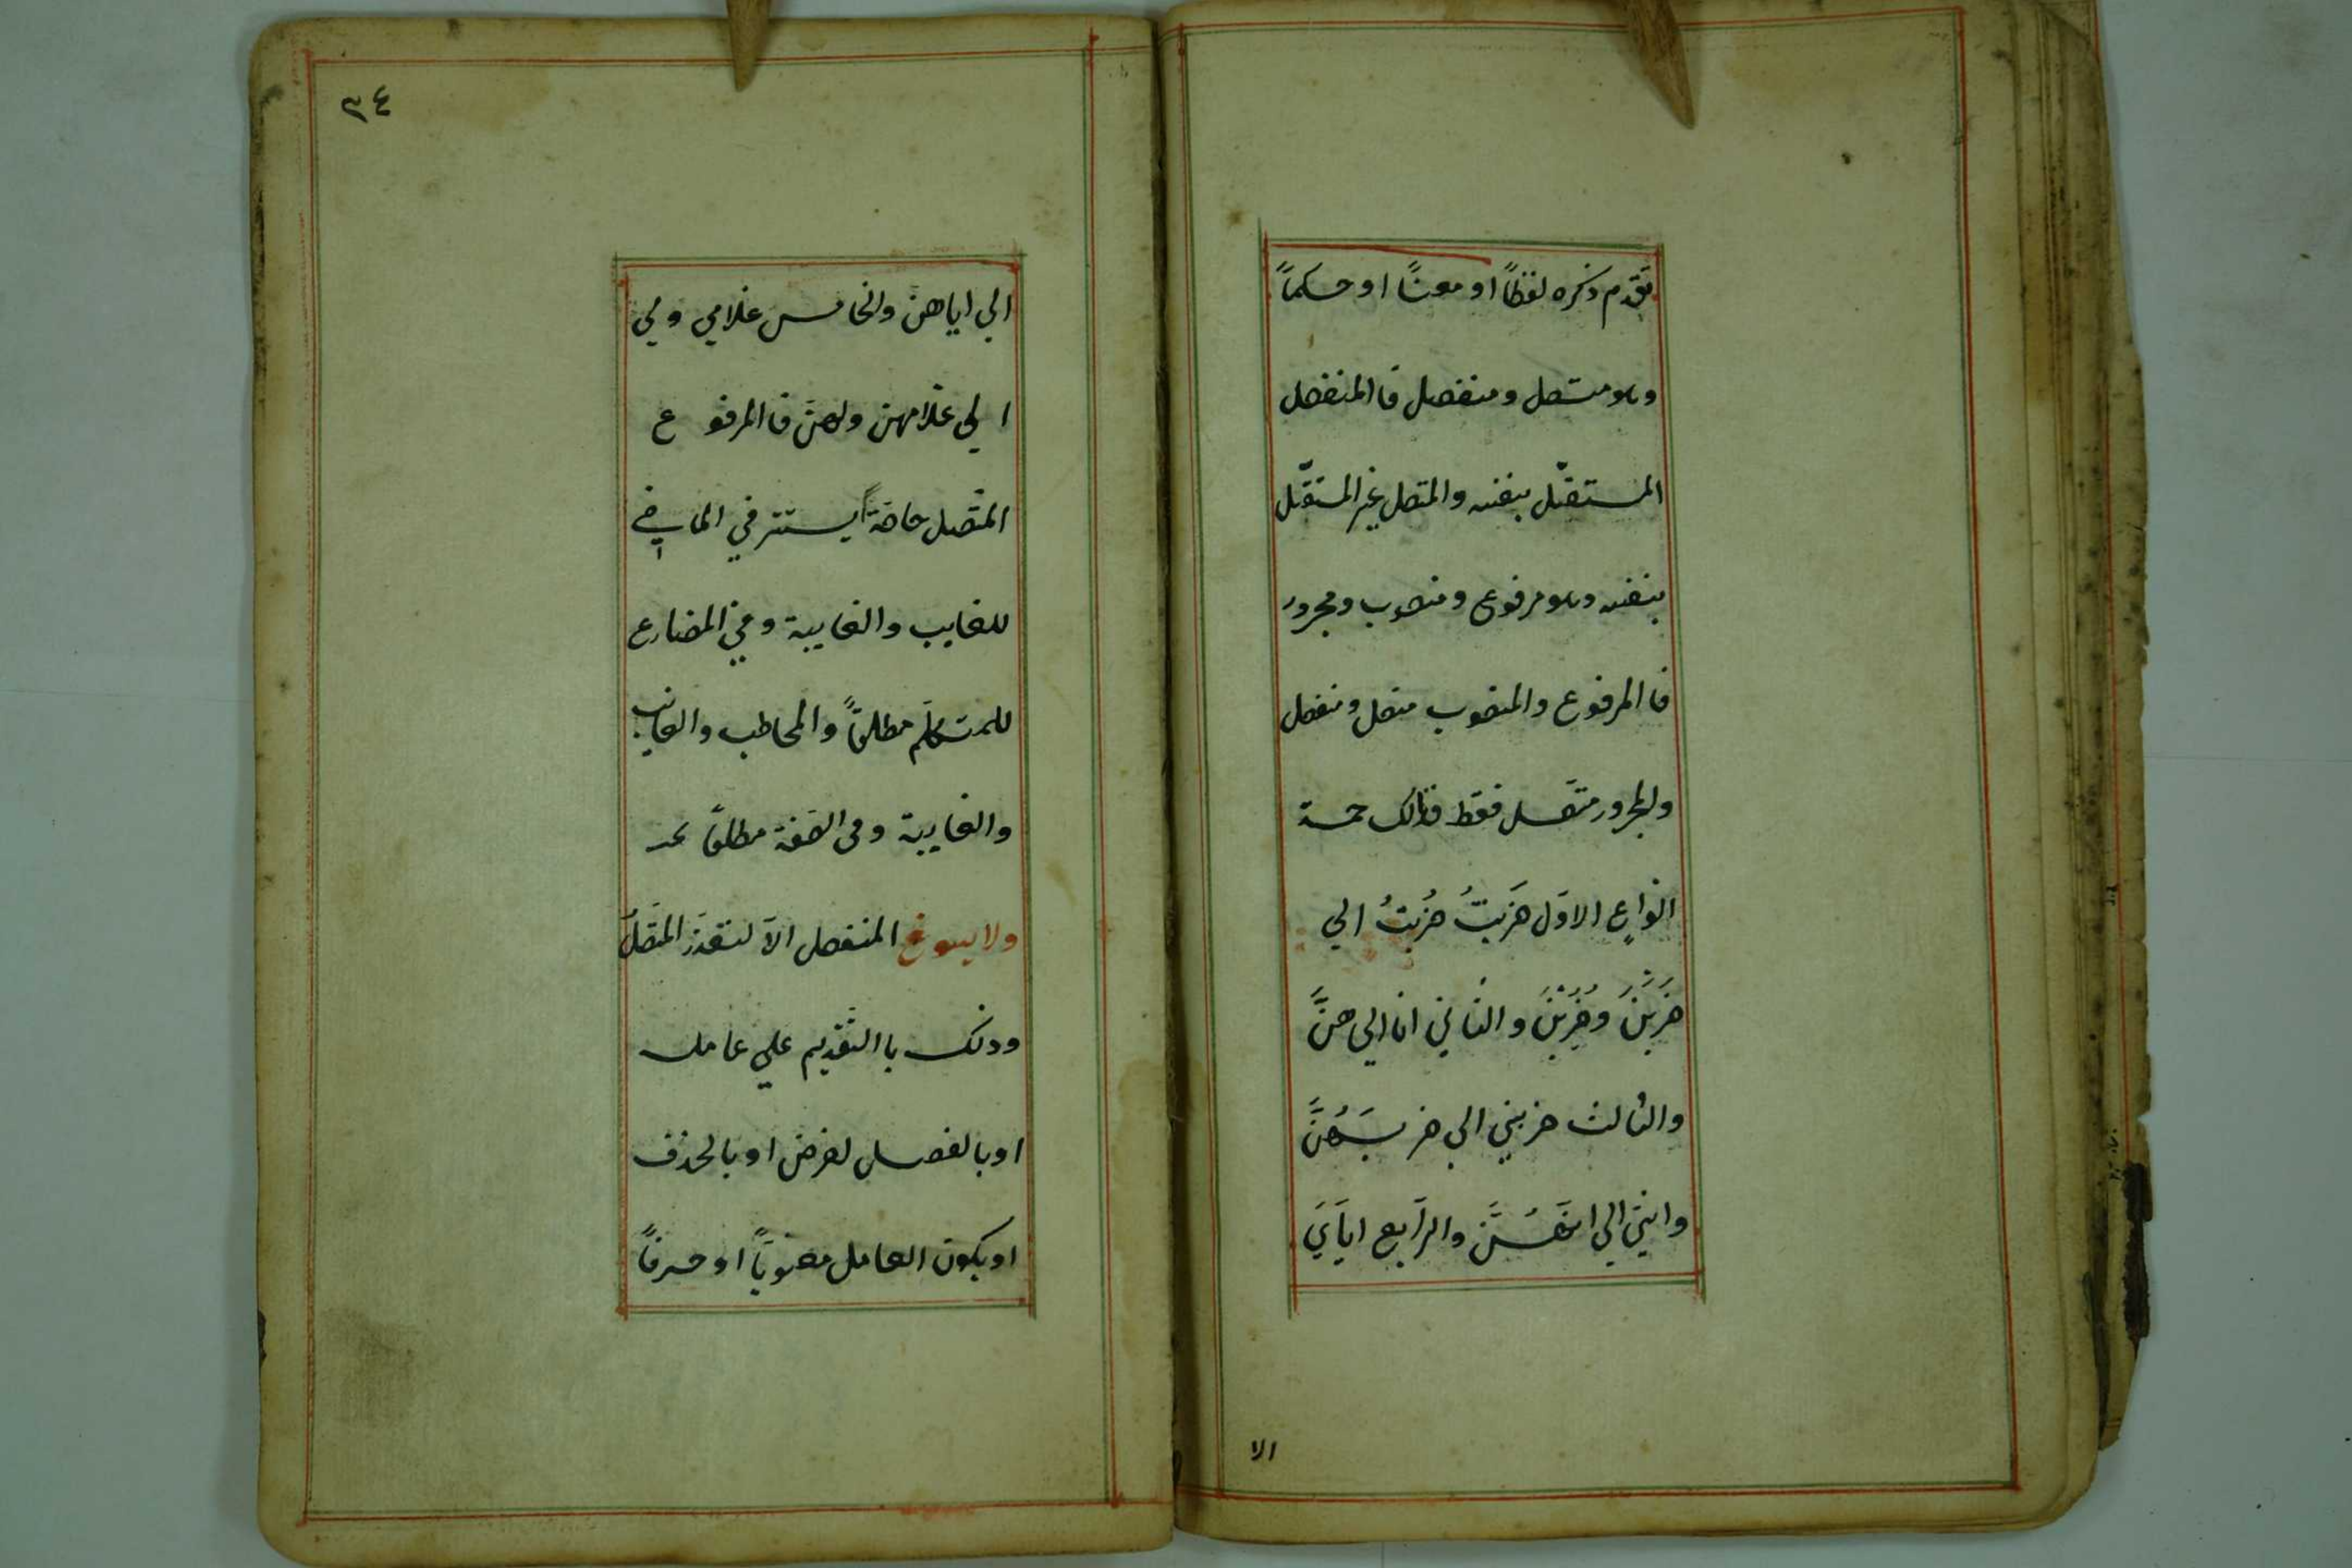 تقدم ذكره لفظاً او معناً او حكماً
وهو متصل ومنفصل فا المنفصل
المستقّل بنفسه والمتصل غير المستقّل
بنفسه وهو مرفوع ومنصوب ومجرور
فا المرفوع والمنصوب متصل ومنفصل
والمجرور متصل فقط فذالك خمسة
انواعٍ الاوّل ضَربتُ ضُربتُ الي
ضَرَبْنَ وضُرِبْنَ والثاني انا الي هنَّ
والثالث ضربني الي ضربَهُنَّ
وانني الي انَّهُنَّ والرّابع ايّايَ
الا
٣٤
الي اياهن والخامس غلامي ولي
الي غلامهن ولهنَّ فا المرفوع
المتّصل خاصّةً يستتر في الماضي
للغايب والغايبة وفي المضارع
للمتكلّم مطلقاً والمخاطب والغايب
والغايبة وفي الصّفة مطلقاً
ولا يسوغ المنفصل الاّ لتعذّر المتّصلُ
وذلك با التّقديم علي عامله
او بالفصل لغرض او بالحذف
او بكون العامل معنويّاً او حرفاً